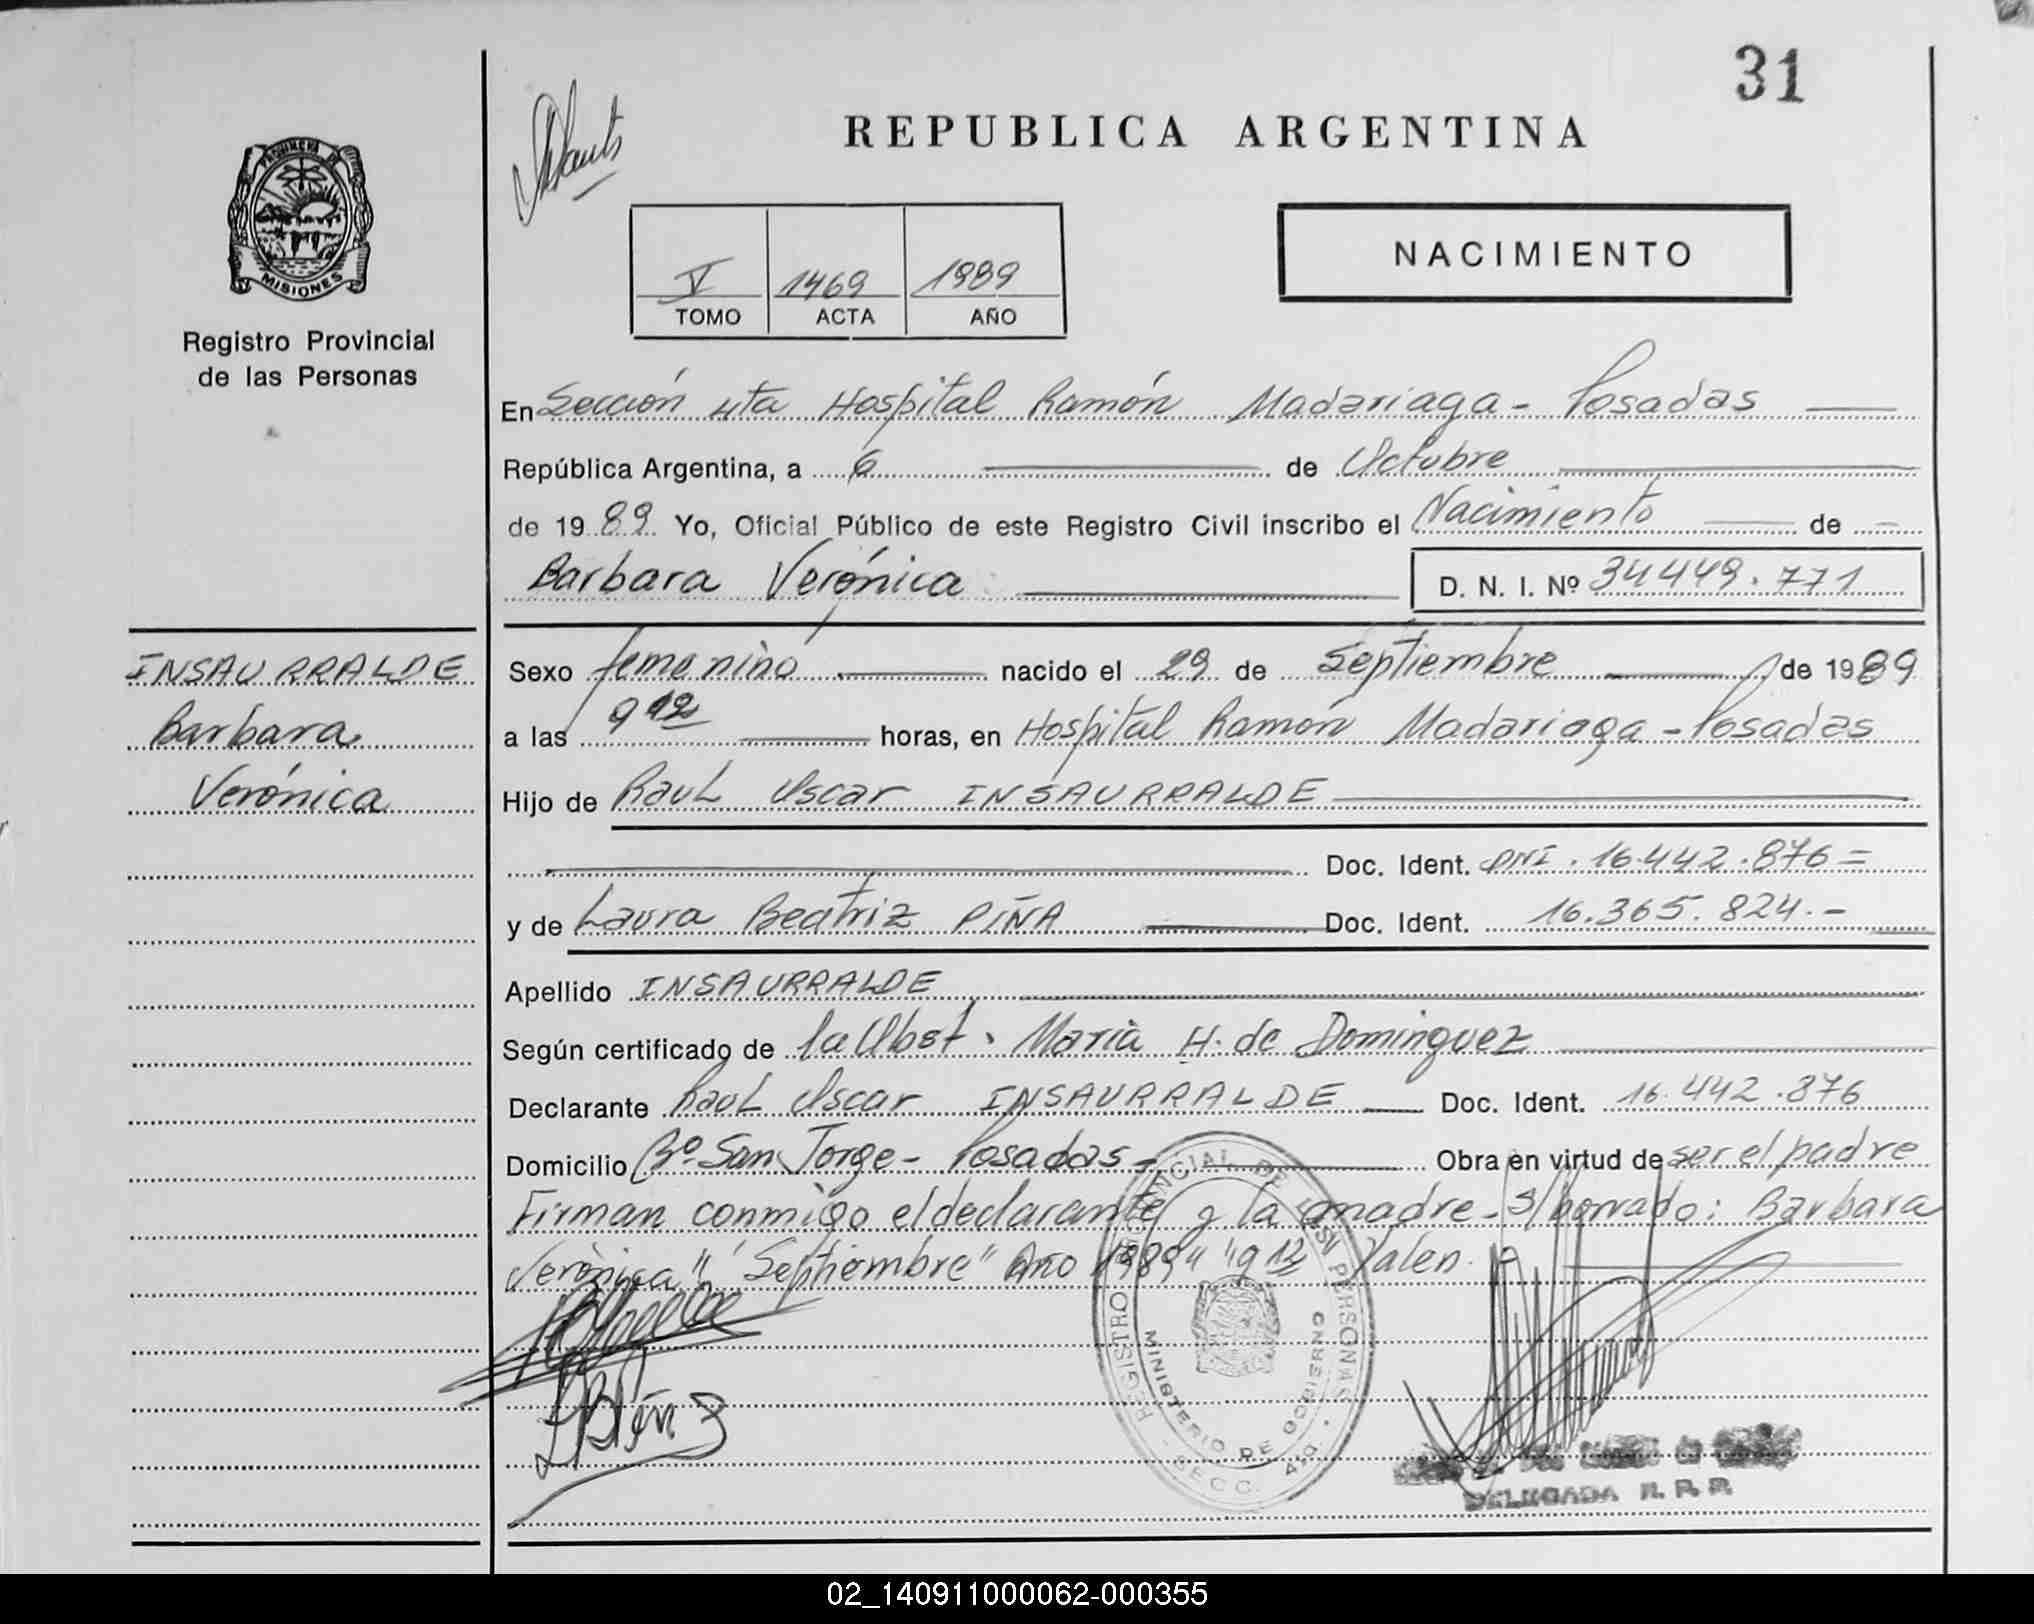 31
REPUBLICA ARGENTINA
PROVINCIA DE
MISIONES
Registro Provincial
de las Personas
V 1469 1989
TOMO ACTA AÑO
NACIMIENTO
En Sección 4ta Hospital Ramón Madariaga - Posadas
República Argentina, a 6 de Octubre
de 1989 Yo, Oficial Público de este Registro Civil inscribo el Nacimiento de
Barbara Verónica
D. N. I. Nº 34449.771
INSAURRALDE
Barbara
Verónica
Sexo femenino nacido el 29 de Septiembre de 1989
a las 9 12 horas, en Hospital Ramón Madariaga - Posadas
Hijo de Raul Oscar INSAURRALDE
Doc. Ident. DNI. 16.442.876 =
y de Laura Beatriz PIÑA Doc. Ident. 16.365.824.-
Apellido INSAURRALDE
Según certificado de la Obst. Maria H. de Dominguez
Declarante Raul Oscar INSAURRALDE Doc. Ident. 16.442.876
Domicilio Bº San Jorge - Posadas - Obra en virtud de ser el padre
Firman conmigo el declarante y la madre - S/borrado: Barbara
Verónica" "Septiembre" Año 1989" "9 12 Valen.
REGISTRO PROVINCIAL DE LAS PERSONAS
MINISTERIO DE GOBIERNO
SECC. 4ta
L B Piña
DELEGADA R. P. P.
02_140911000062-000355